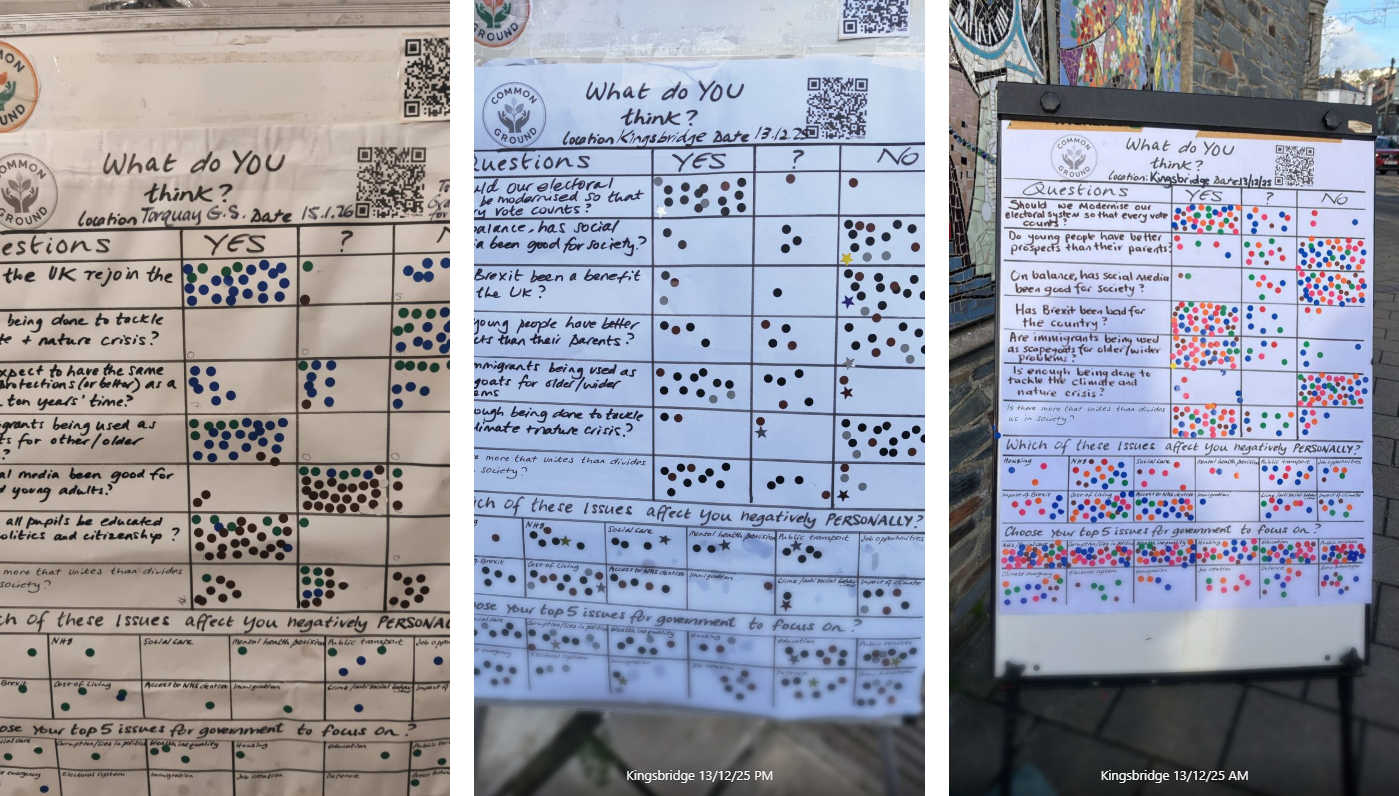 COMMON
GROUND
What do YOU
think?
Location Torquay G.S. Date 15.1.26
estions
YES
?
N
the UK rejoin the
being done to tackle
te + nature crisis?
xpect to have the same
(or better) as a
ten years' time?
grants being used as
ts for other/older
?
al media been good for
d young adults?
all pupils be educated
olitics and citizenship?
more that unites than divides
society?
ch of these Issues affect You negatively PERSONAL
NHS
Social care
Mental health provision
Public transport
Job oppo
Brexit
Cost of Living
Access to NHS dentist
Immigration
Crime/anti social behav
Impact of
ose Your top 5 issues for government to focus on?
cial care
Corruption/Lies in politics
Health inequality
Housing
education
Public
e emergency
Electoral system
Immigration
Job creation
Defence
COMMON
GROUND
What do YOU
think?
Location Kingsbridge Date 13.12.25
Questions
YES
?
NO
uld our electoral
be modernised so that
ry vote counts?
balance, has social
ia been good for society?
Brexit been a benefit
the UK?
young people have better
cts than their parents?
mmigrants being used as
goats for older/wider
ems
ough being done to tackle
limate + nature crisis?
more that unites than divides
society?
ich of these Issues affect You negatively PERSONALLY?
NHS
Social care
Mental health provision
Public transport
Job opportunities
Brexit
Cost of Living
Access to NHS dentist
Immigration
Crime/anti social behav
Impact of climate
oose Your top 5 issues for government to focus on?
Corruption/Lies in politics
Health inequality
Housing
education
Public services
emergency
Electoral system
Immigration
Job creation
Defence
Kingsbridge 13/12/25 PM
COMMON
GROUND
What do YOU
think?
Location: Kingsbridge Date 13/12/25
Questions
YES
?
NO
Should we Modernise our
electoral system so that every vote
counts?
Do young people have better
prospects than their parents?
On balance, has social Media
been good for society?
Has Brexit been bad for
the country?
Are immigrants being used
as scapegoats for older/wider
problems?
Is enough being done to
tackle the climate and
nature crisis?
Is there more that unites than divides
us in society?
Which of these Issues affect You negatively PERSONALLY?
Housing
NHS
Social care
Mental health provision
Public transport
Job opportunities
Impact of Brexit
Cost of Living
Access to NHS dentist
Immigration
Crime/anti social behav
Impact of climate
Choose Your top 5 issues for government to focus on?
NHS/Social care
Corruption/Lies in politics
Health inequality
Housing
Education
Public services
Climate emergency
Electoral system
Immigration
Job creation
Defence
Kingsbridge 13/12/25 AM